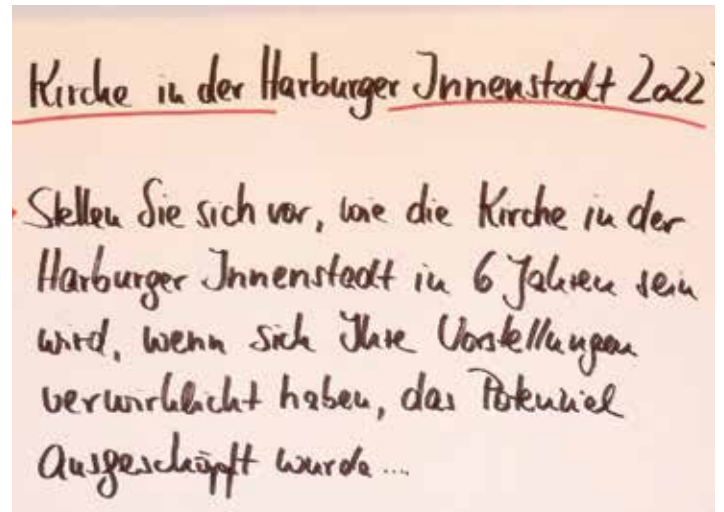 Kirche in der Harburger Innenstadt 2022
Stellen Sie sich vor, wie die Kirche in der
Harburger Innenstadt in 6 Jahren sein
wird, wenn sich Ihre Vorstellungen
verwirklicht haben, das Potenziel
Ausgeschöpft wurde...